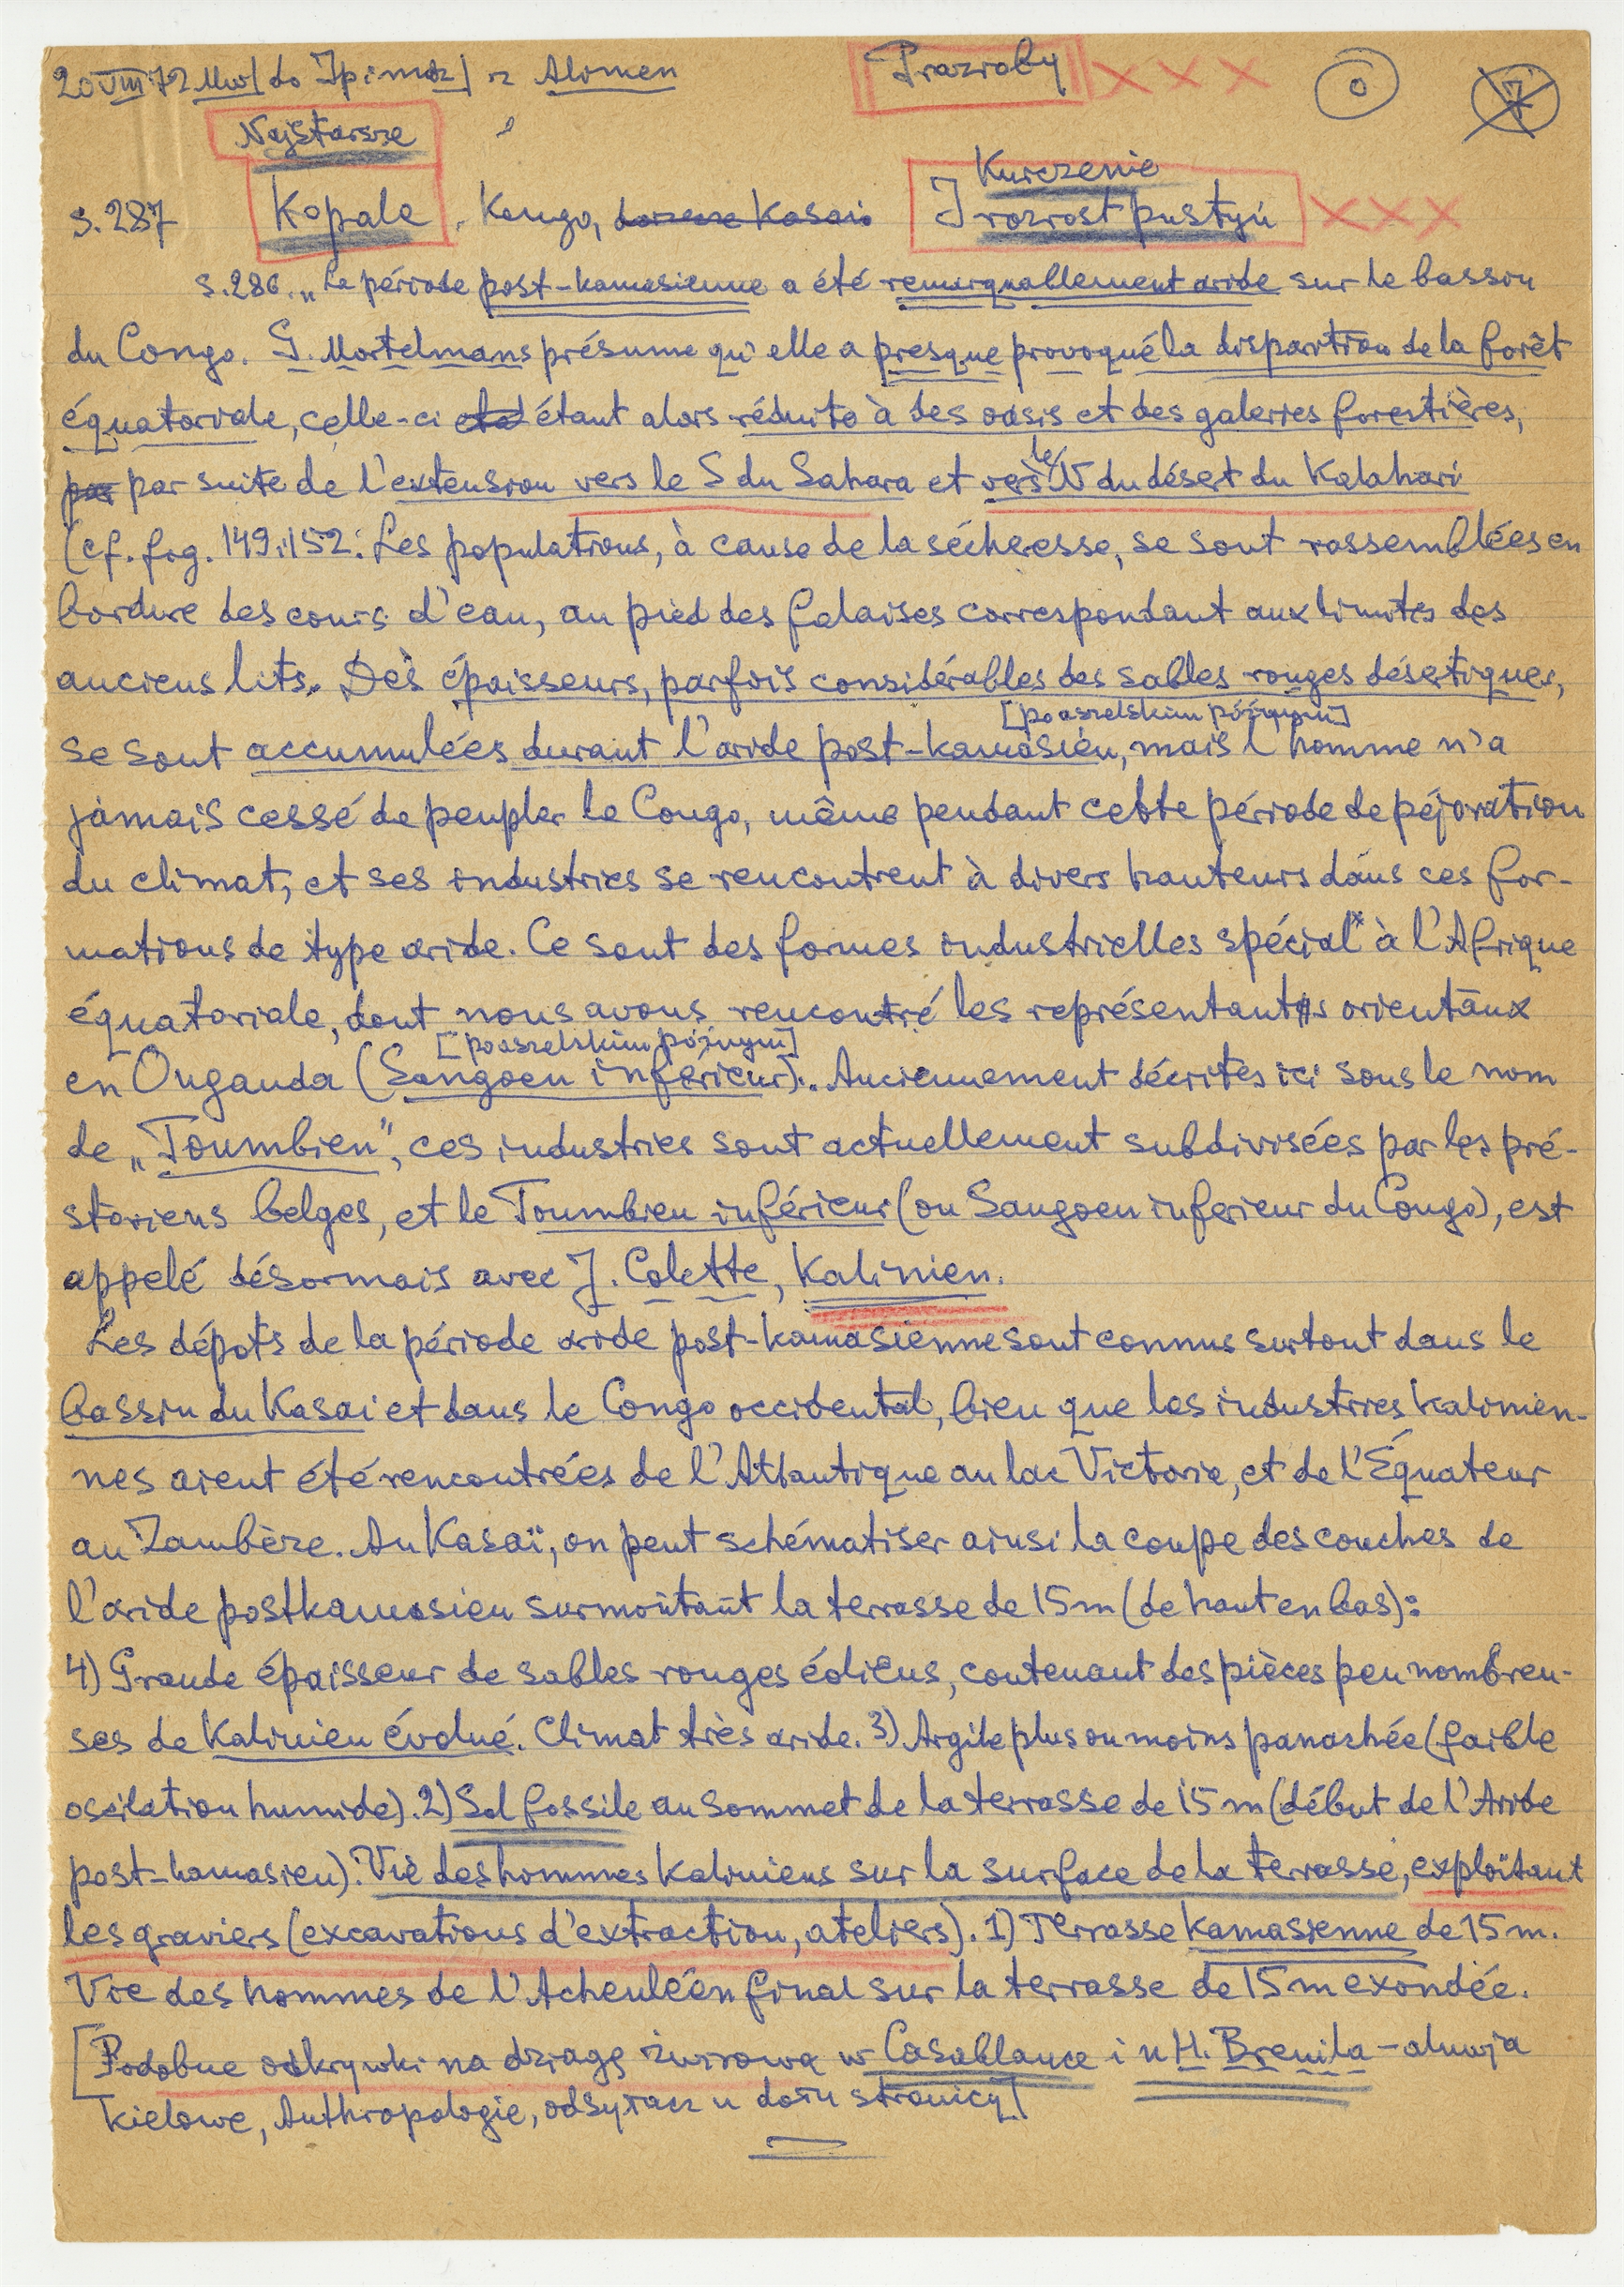 20 VIII 72 z Alimen
Prazroby XXX 0 7
Najstarsze
Kurczenie
s. 287 Kopale, Kongo, dorzecze Kasaio I rozrost pustyń XXX
s. 286. „La période post-kamasienne a été remarquablement aride sur le bassin
du Congo. G. Mortelmans présume qu'elle a presque provoqué la disparition de la forêt
équatoriale, celle-ci étant alors réduite à des oasis et des galeries forestières,
par suite de l'extension vers le S du Sahara et vers le N du désert du Kalahari
(cf. fig. 149 i 152. Les populations, à cause de la sécheresse, se sont rassemblées en
bordure des cours d'eau, au pied des falaises correspondant aux limites des
anciens lits. Dès épaisseurs, parfois considérables des sables rouges désertiques,
[poaszelskim późnym]
se sont accumulées durant l'aride post-kamasien, mais l'homme n'a
jamais cessé de peupler le Congo, même pendant cette période de péjoration
du climat, et ses industries se rencontrent à divers hauteurs dans ces for-
mations de type aride. Ce sont des formes industrielles spécialx à l'Afrique
équatoriale, dont nous avons rencontré les représentants orientaux
[poaszelskim późnym]
en Ouganda (Sangoen inférieur). Anciennement décrites ici sous le nom
de „Toumbien", ces industries sont actuellement subdivisées par les pré-
storiens belges, et le Toumbien inférieur (ou Sangoen inferieur du Congo), est
appelé désormais avec J. Colette, Kalinien.
Les dépots de la période aride post-kamasienne sont connus surtout dans le
bassin du Kasai et dans le Congo occidental, bien que les industries kalinien-
nes aient été rencontrées de l'Atlantique au lac Victoria, et de l'Équateur
au Zambèze. Au Kasaï, on peut schématiser ainsi la coupe des couches de
l'aride postkamasien surmontant la terrasse de 15 m (de haut en bas):
4) Grande épaisseur de sables rouges éoliens, contenant des pièces peu nombreu-
ses de Kalinien évolué. Climat très aride. 3) Argile plus ou moins panachée (faible
oscilation humide). 2) Sol fossile au sommet de la terrasse de 15 m (début de l'Aride
post-kamasien). Vie des hommes kaliniens sur la surface de la terrasse, exploitant
les graviers (excavations d'extraction, ateliers). 1) Terrasse kamasienne de 15 m.
Vie des hommes de l'Acheuléén final sur la terrasse de 15 m exondée.
[Podobne odkrywki na dziagę żwirową w Casablance i u H. Breuila – aluwja
kielowe, Anthropologie, odsyłacz u dołu stronicy]